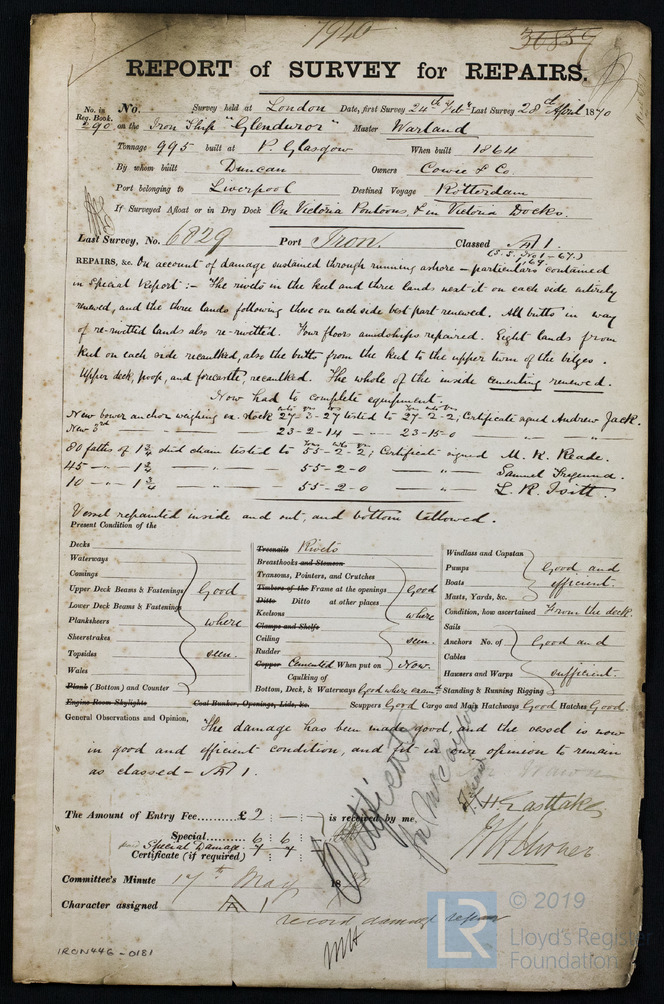 1940
30839
REPORT of SURVEY for REPAIRS.
No. in Reg. Book. No. Survey held at London Date, first Survey 24th Feby Last Survey 28th April 1870
290 on the Iron Ship "Glendwror" Master Warland
Tonnage 995 built at P. Glasgow When built 1864
By whom built Duncan Owners Cowie & Co.
Port belonging to Liverpool Destined Voyage Rotterdam
If Surveyed Afloat or in Dry Dock On Victoria Pontoons, & in Victoria Docks.
Last Survey, No. 6829 Port Iron. Classed A 1.
(S.S. No 1 - 67.)
REPAIRS, &c. On account of damage sustained through running ashore – particulars contained
in Special Report :– The rivets in the keel and three lands next it on each side entirely
renewed, and the three lands following these on each side best part renewed. All butts in way
of re-rivetted lands also re-rivetted. Four floors amidships repaired. Eight lands from
keel on each side recaulked, also the butts from the keel to the upper turn of the bilges.
Upper deck, poop, and forecastle, recaulked. The whole of the inside cementing renewed.
Now had to complete equipment.
New bower anchor weighing ex. stock 27-3-27 tested to 27-2-2; Certificate signed Andrew Jack.
New 3rd — — 23-2-14 — 23-15-0 — " — "
80 faths of 1 3/4 stud chain tested to 55-2-2; Certificate signed M. K. Reade.
45 — " — 1 3/4 — " — 55-2-0 — " — Samuel
10 — " — 1 3/4 — " — 55-2-0 — " — L. R.
Vessel repainted inside and out, and bottom tallowed.
Present Condition of the
Decks
Waterways
Comings
Upper Deck Beams & Fastenings
Lower Deck Beams & Fastenings
Planksheers
Sheerstrakes
Topsides
Wales
Plank (Bottom) and Counter
Good where seen.
Engine Room Skylights Coal Bunker, Openings, Lids, &c.
Treenails Rivets
Breasthooks and Stemson
Transoms, Pointers, and Crutches
Timbers of the Frame at the openings
Ditto Ditto at other places
Keelsons
Clamps and Shelfs
Ceiling
Rudder
Good where seen.
Copper Cemented When put on Now.
Caulking of
Bottom, Deck, & Waterways Good where examd.
Windlass and Capstan
Pumps
Boats
Masts, Yards, &c.
Good and efficient.
Condition, how ascertained From the deck.
Sails
Anchors No. of
Cables
Hawsers and Warps
Standing & Running Rigging
Good and sufficient.
Scuppers Good Cargo and Main Hatchways Good Hatches Good.
General Observations and Opinion, The damage has been made good, and the vessel is now
in good and efficient condition, and fit in our opinion to remain
as classed – A 1.
The Amount of Entry Fee.......... £ 2 : – : – is received by me,
Special.......... 6 : 6 :
Special Damage 7 : 7 :
Certificate (if required)
Certificate
H Eastlake
Committee's Minute 17th May 18
Character assigned A 1
record damage repair
IRON446-0181
LR
© 2019
Lloyd's Register
Foundation